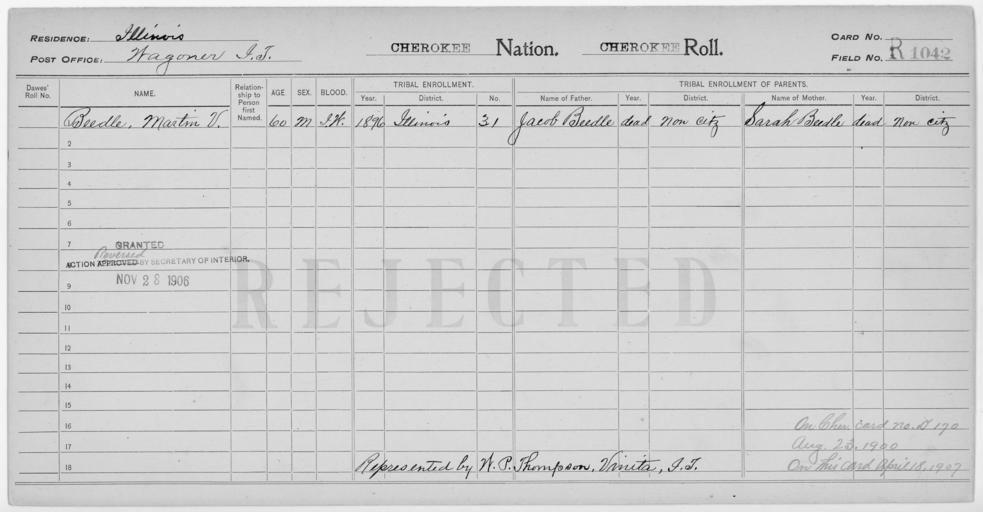 RESIDENCE: Illinois
POST OFFICE: Wagoner I.T.
CHEROKEE Nation. CHEROKEE Roll.
CARD NO.
FIELD NO. R 1042
Dawes' Roll No. NAME. Relationship to Person first Named. AGE SEX. BLOOD. TRIBAL ENROLLMENT. TRIBAL ENROLLMENT OF PARENTS.
Year. District. No. Name of Father. Year. District. Name of Mother. Year. District.
Beedle, Martin V. 60 M I.W. 1896 Illinois 31 Jacob Beedle dead Non citz Sarah Beedle dead Non citz
2
3
4
5
6
7 GRANTED
Reversed
8 ACTION APPROVED BY SECRETARY OF INTERIOR.
9 NOV 28 1906
REJECTED
10
11
12
13
14
15
16 On Cher. card no. D 170
17 Aug. 23, 1900
18 Represented by W. P. Thompson, Vinita, I.T. On this card April 18, 1907